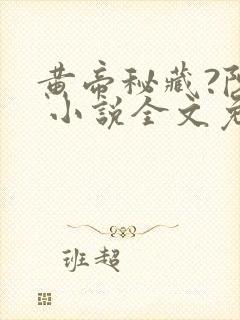 黄帝秘藏?阴
小说全文免
班超